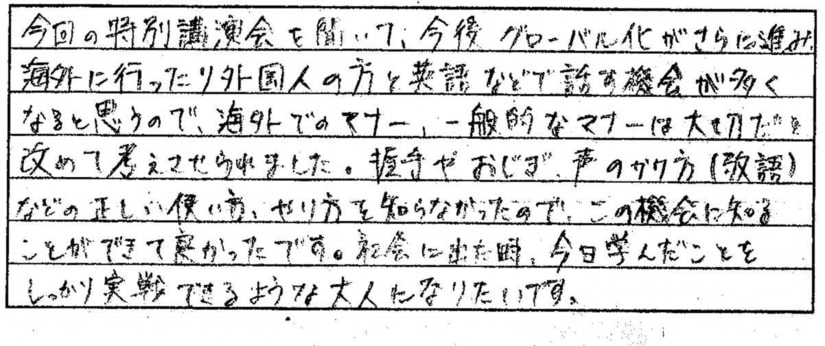 今回の特別講演会を聞いて、今後グローバル化がさらに進み、
海外に行ったり外国人の方と英語などで話す機会が多く
なると思うので、海外でのマナー、一般的なマナーは大切だと
改めて考えさせられました。握手やおじぎ、声のかけ方(敬語)
などの正しい使い方、やり方を知らなかったので、この機会に知る
ことができて良かったです。社会に出た時、今日学んだことを
しっかり実戦できるような大人になりたいです。